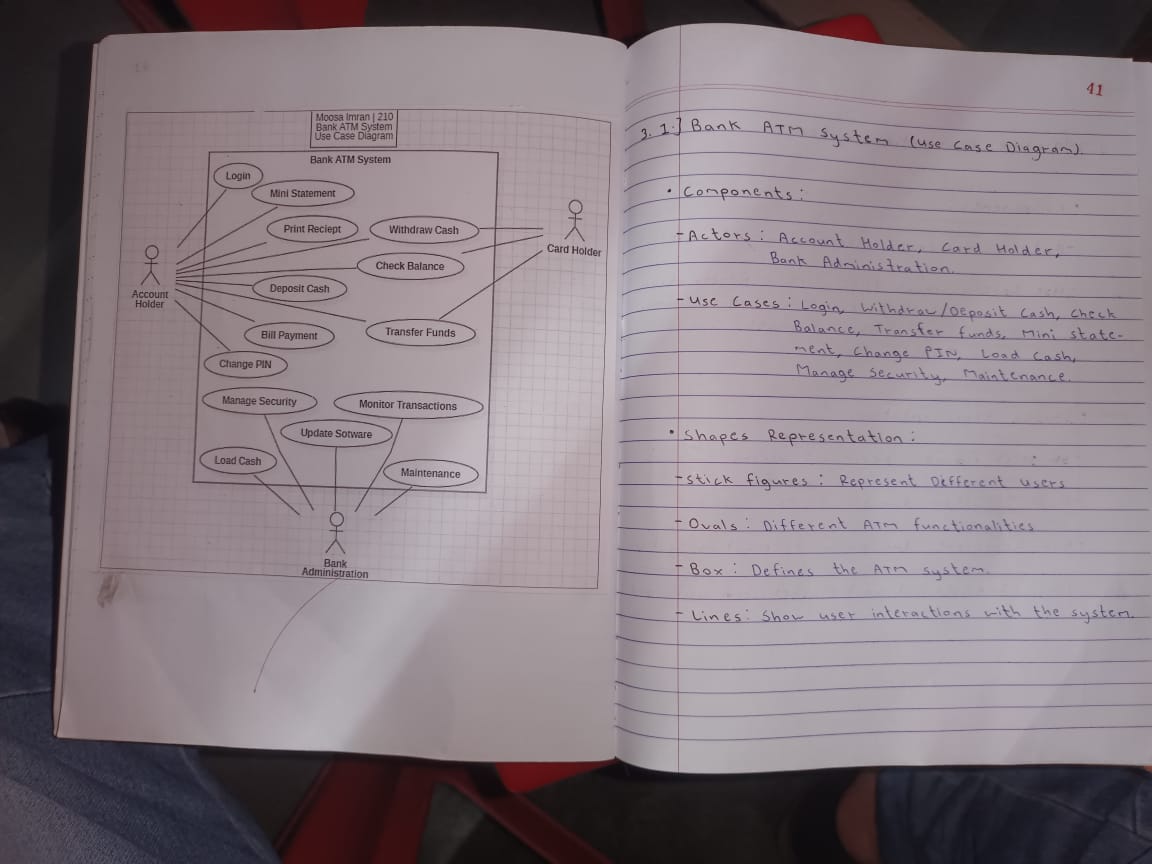 Moosa Imran | 210
Bank ATM System
Use Case Diagram
Bank ATM System
Login
Mini Statement
Print Reciept
Withdraw Cash
Check Balance
Deposit Cash
Bill Payment
Transfer Funds
Change PIN
Manage Security
Monitor Transactions
Update Sotware
Load Cash
Maintenance
Account
Holder
Card Holder
Bank
Administration
41
3. 1.] Bank ATM System (Use Case Diagram).
• Components:
- Actors : Account Holder, Card Holder,
Bank Administration.
- Use Cases : Login, Withdraw/Deposit Cash, Check
Balance, Transfer funds, Mini state-
ment, Change PIN, Load Cash,
Manage Security, Maintenance.
• Shapes Representation :
- Stick figures : Represent Different users
- Ovals : Different ATM functionalities
- Box : Defines the ATM system.
- Lines: Show user interactions with the system.